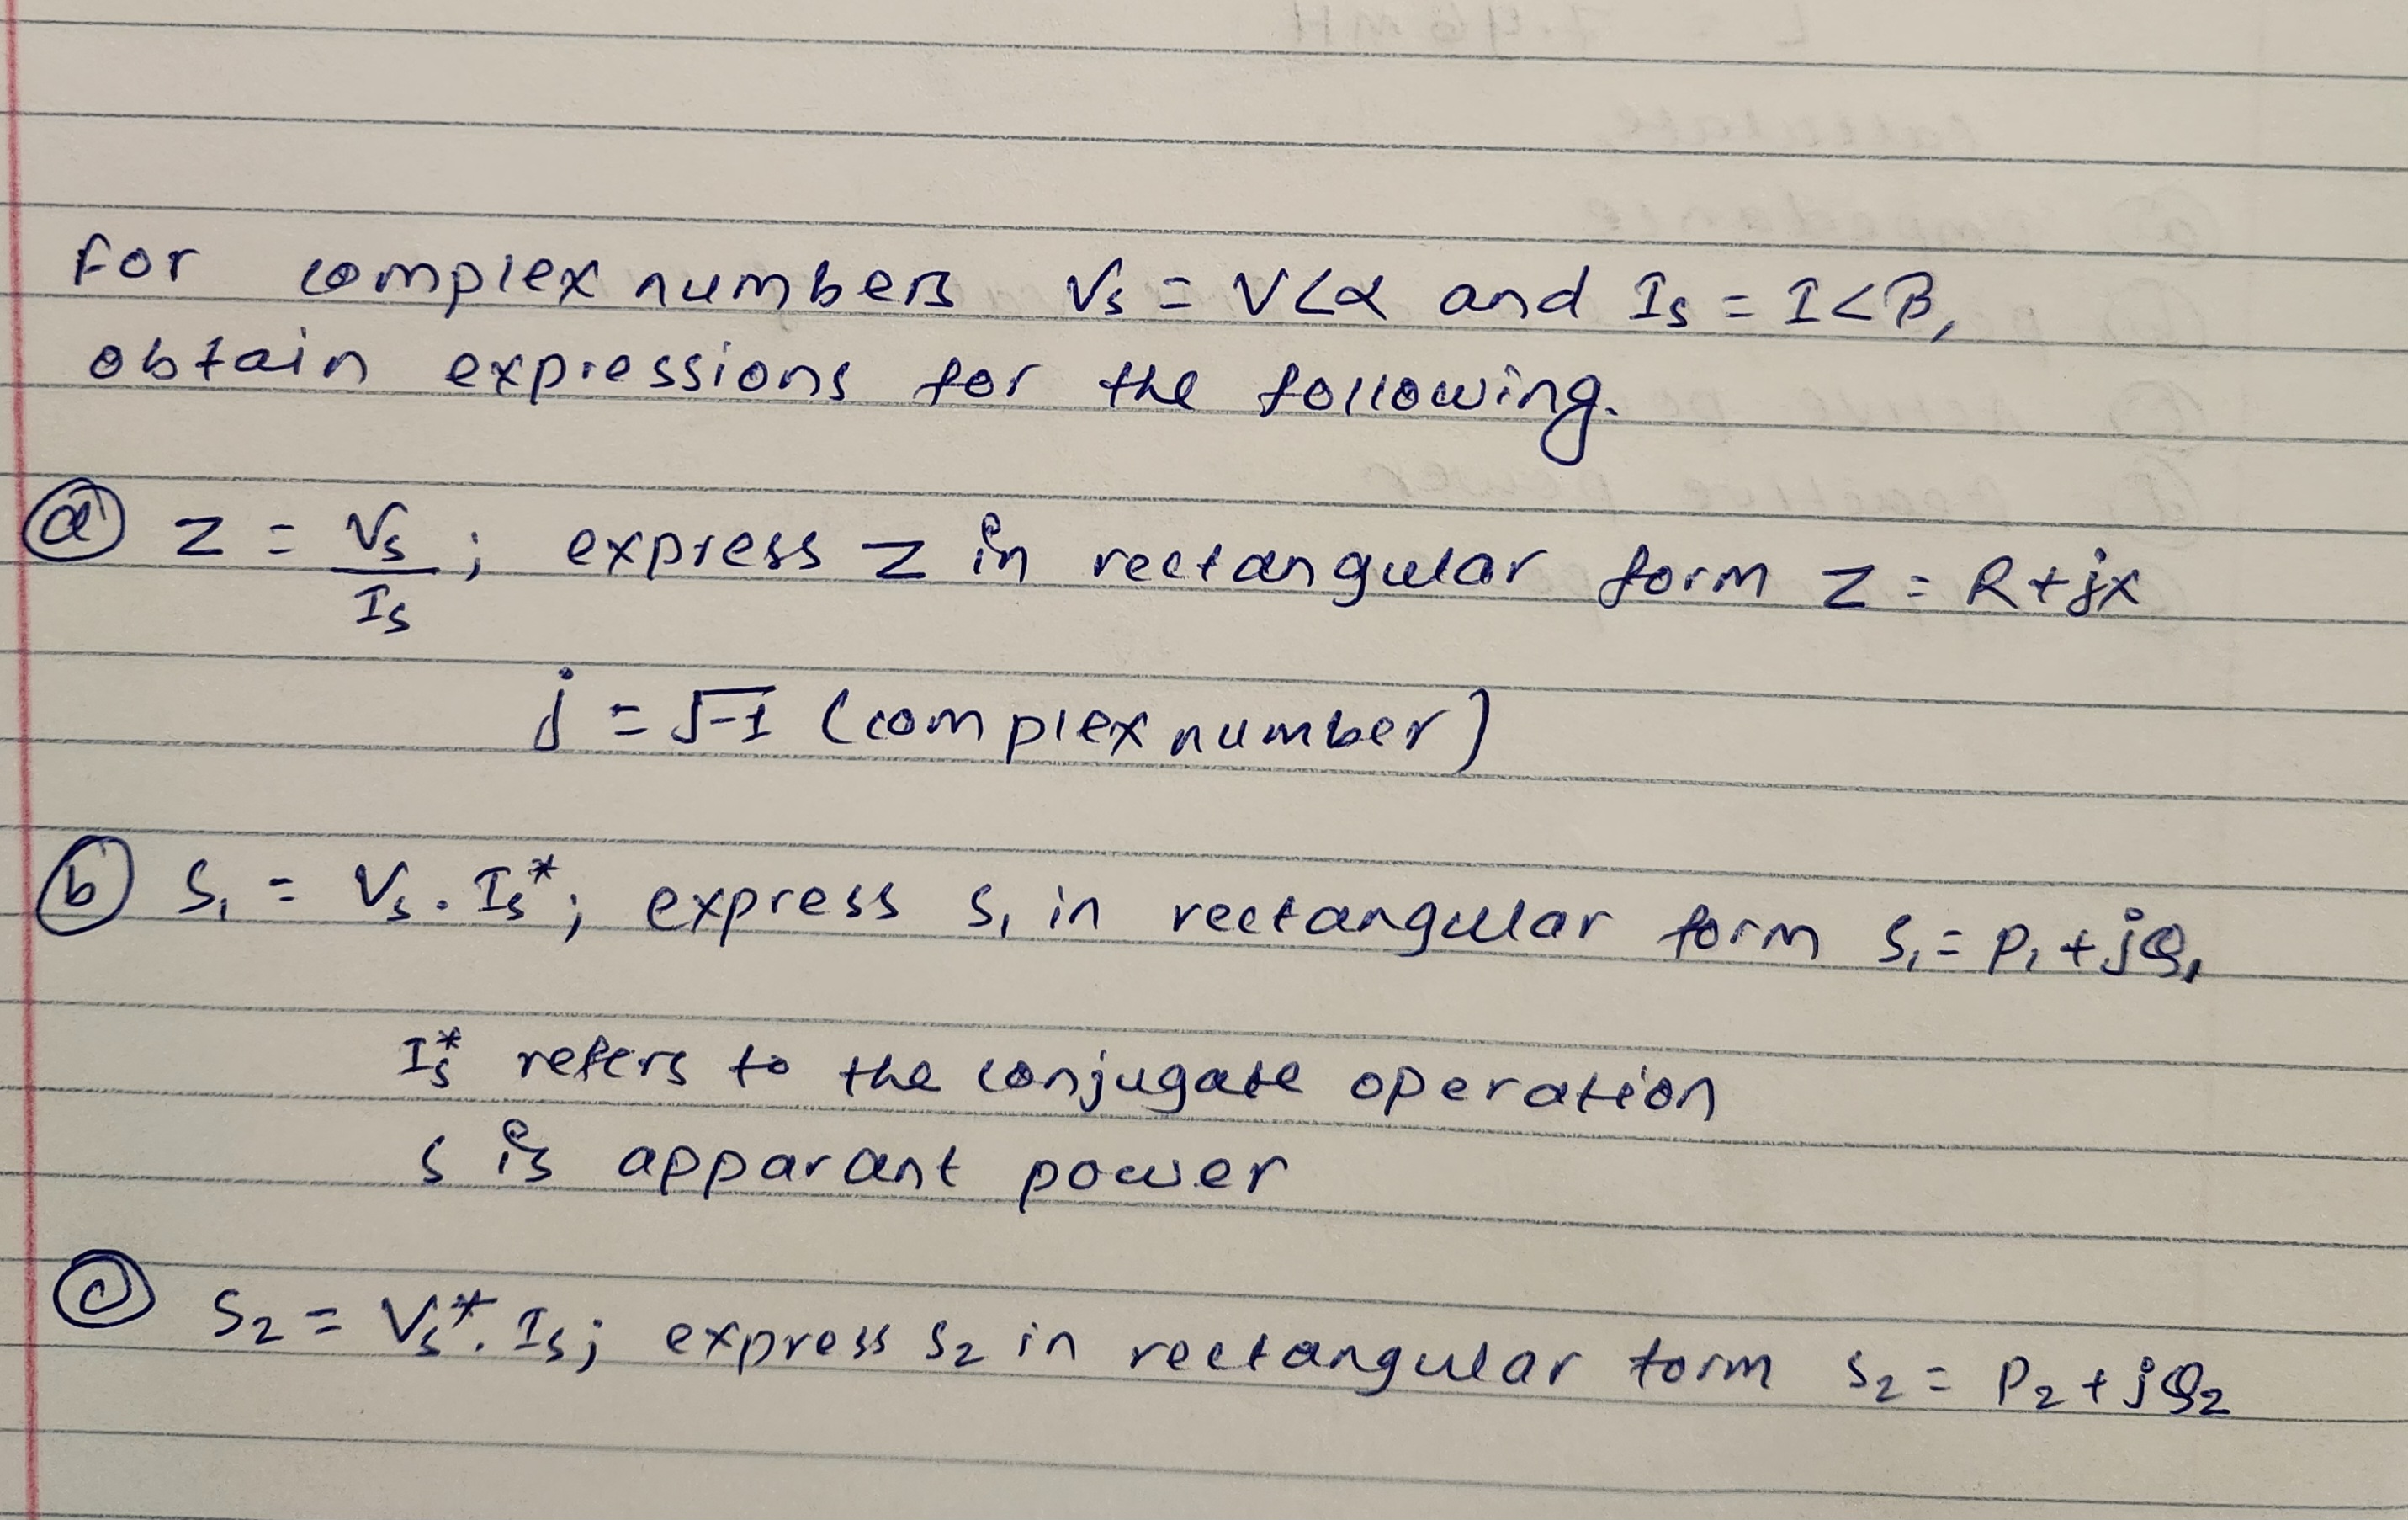 for complex numbers Vs = V∠α and Is = I∠β,
obtain expressions for the following.
(a) Z = Vs/Is; express Z in rectangular form Z = R+jx
j = √-1 (complex number)
(b) S₁ = Vs . Is*; express S₁ in rectangular form S₁ = P₁ + jQ₁
Is* refers to the conjugate operation
S is apparant power
(c) S₂ = Vs* . Is; express S₂ in rectangular form S₂ = P₂ + jQ₂